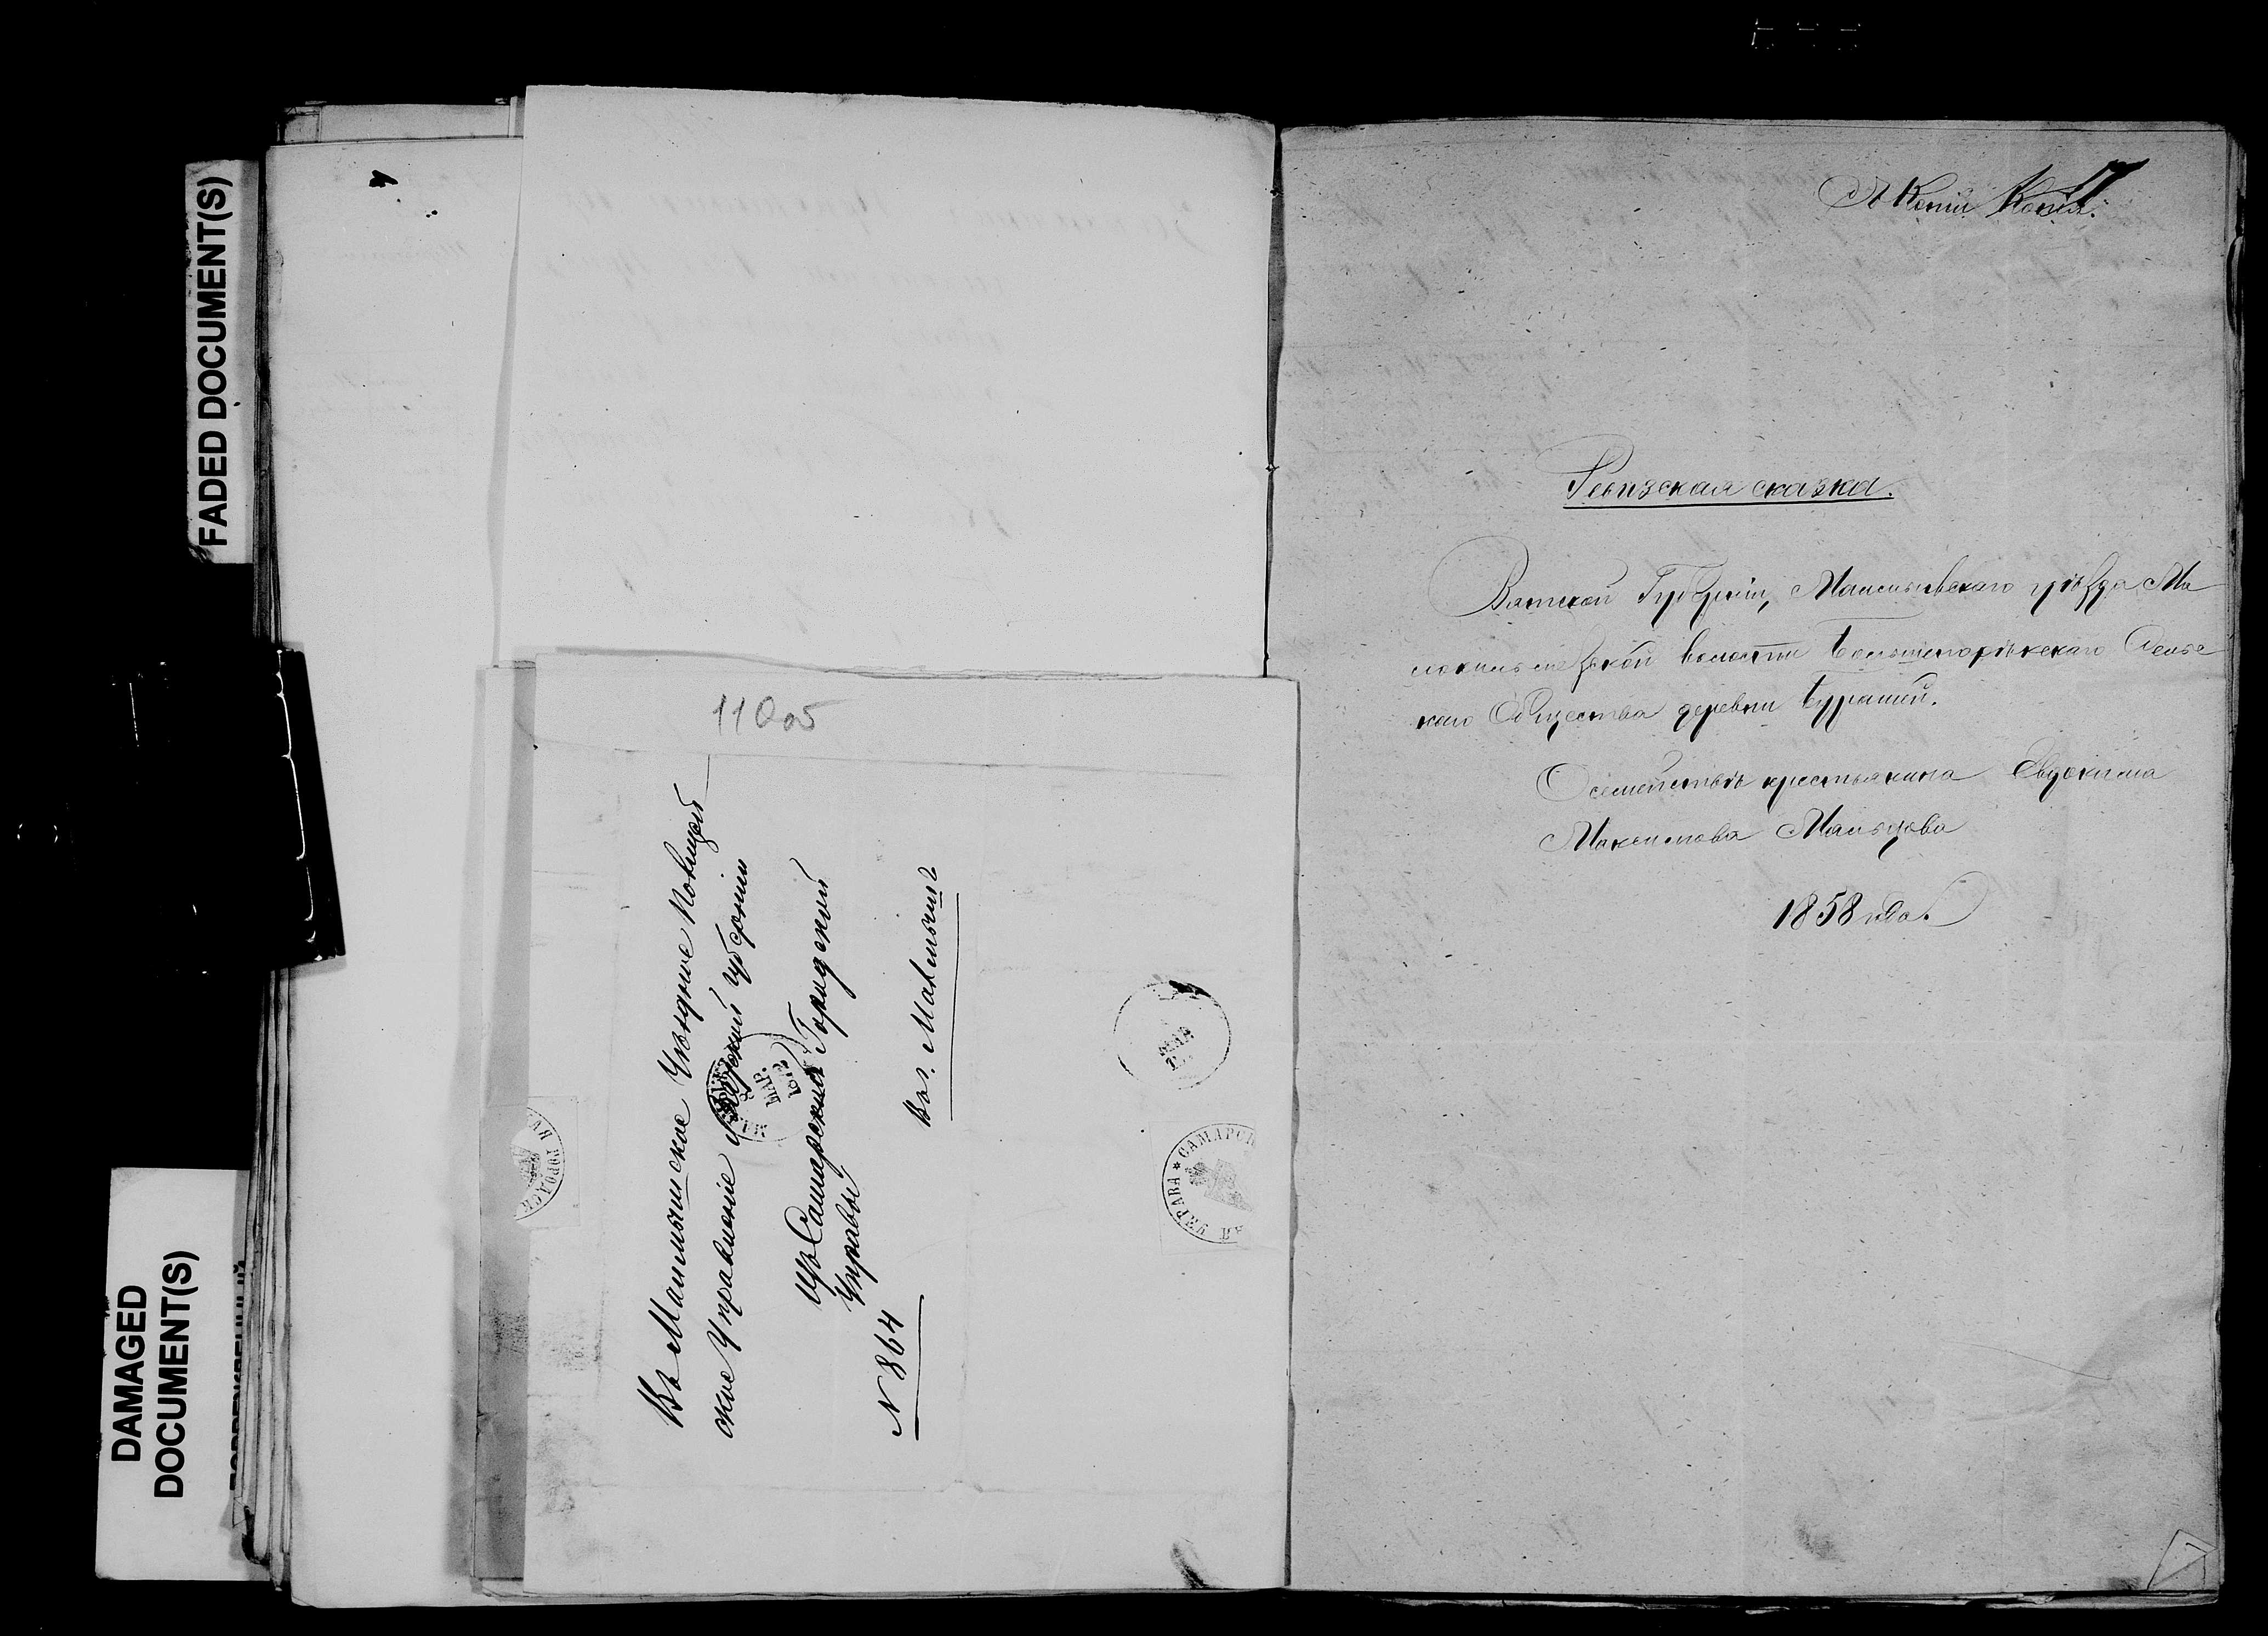 FADED DOCUMENT(S)
DAMAGED
DOCUMENT(S)
11 об
Въ Малмыжское Уѣздное Полицей
ское Управленіе Вятской губерніи
Изъ Самарской Городской
Управы
Въ г. Малмыжъ
№ 864
МАР.
УПРАВА * САМАРСК
Съ Копіи Копія.
17
Ревизская сказка.
Вятской Губерніи, Малмыжскаго уѣзда Ма
локильмезской волости Большепорѣкскаго Сельс
каго Общества деревни Бурашей.
О семействѣ крестьянина Евдокима
Максимова Мальцова
1858 года.